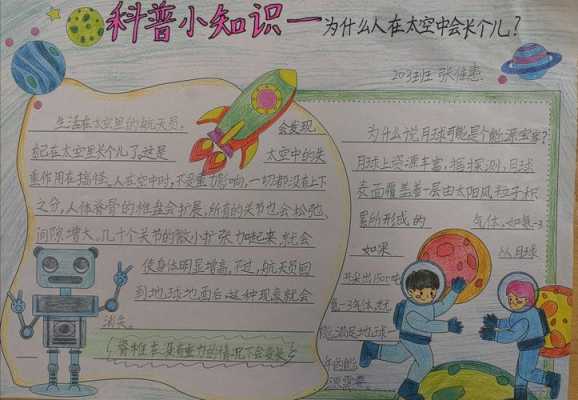 科普小知识—为什么人在太空中会长个儿？
203班 张佳惠
生活在太空里的航天员，会发现
自己在太空里长个儿了，这是太空中的失
重作用在搞怪。人在空中时，不受重力影响，一切都没有上下
之分，人体脊骨的椎盘会扩展，所有的关节也会松弛，
间隙增大，几十个关节的微小扩张力加起来，就会
使身体明显增高，不过，航天员回
到地球地面后，这种现象就会
消失。
（脊椎在没有重力的情况下会变长）
为什么说月球可能是个能源宝库？
月球上资源丰富，据探测，月球
表面覆盖着一层由太阳风粒子积
累所形成的气体，如氦-3
如果从月球
共采出1500吨
氦-3气体，就
能满足地球一
年的能
源需要。